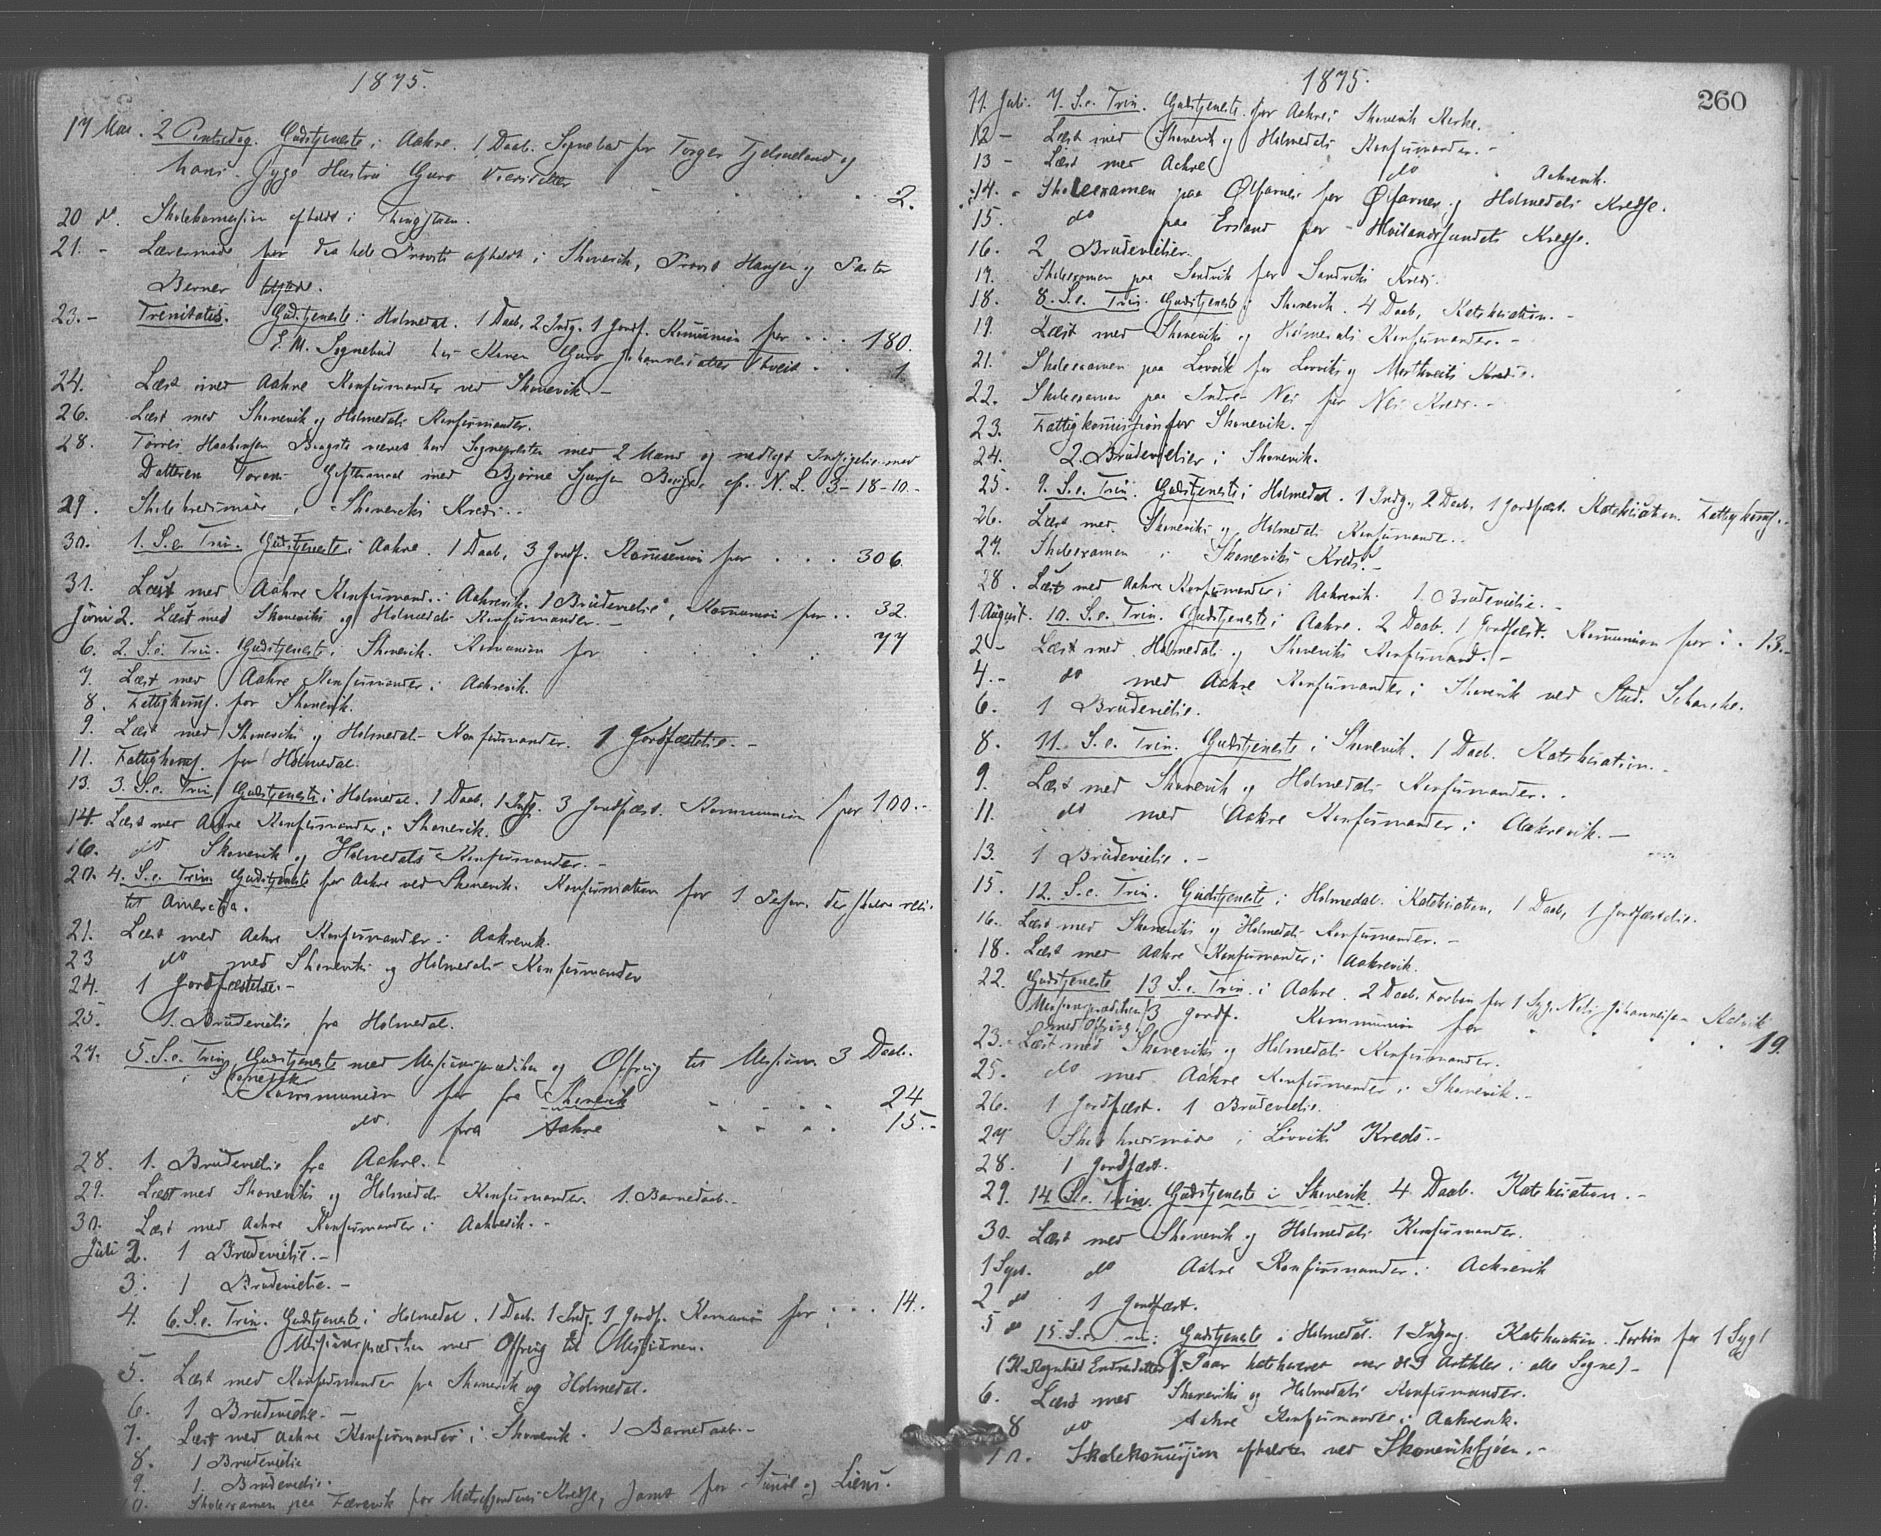 1875.
17 Mai. 2 Pintsedag. Gudstjeneste i Aakre. 1 Daab. Sognebud for Torger Fjelmeland og
hans syge Hustru Guro . . . 2.
20 do. Skolekomission afholdt i
21. - Læremøde for afholdt i Skonevik, Provst Hansen og Pastor
Berner tilstede.
23. - Trinitatis. Gudstjeneste i Holmedal. 1 Daab, 2 Indg. 1 Jordf. Komunion for . . . 180.
E. M. Sognebud hos Konen Guro Johannesdatter Tveit . . 1
24. Læst med Aakre Konfirmander ved Skonevik. -
26. Læst med Skonevik og Holmedals Konfirmander.
28. Torris Haakensen været hos Sognepresten med 2 Mænd og nedlagt Indsigelse mod
Datteren Giftermaal med Bjørne Sjursen N. L. 3-18-10. -
29. Skolekredsmøde i Skoneviks Kreds. -
30. 1. S. e. Trin. Gudstjeneste i Aakre. 1 Daab, 3 Jordf. Komunion for . . . 306.
31. Læst med Aakre Konfirmand. i Aakrevik. 1 Brudevielse, Komunion for . . 32.
Juni 2. Læst med Skoneviks og Holmedals Konfirmander. -
6. 2. S. e. Trin. Gudstjeneste i Skonevik. Komunion for . . . 77
7. Læst med Aakre Konfirmander i Aakrevik.
8. Fattigkomf. for Skonevik.
9. Læst med Skoneviks og Holmedals Konfirmander. 1 Jordfæstelse. -
11. Fattigkomf. for Holmedal.
13. 3. S. e. Trin. Gudstjeneste i Holmedal. 1 Daab, 1 Indg. 3 Jordfæst. Kommunion for 100. -
14. Læst med Aakre Konfirmander i Skonevik.
16. do Skonevik og Holmedals Konfirmander. -
20. 4. S. e. Trin. Gudstjeneste for Aakre ved Skonevik. Konfirmation for 1 Person der skulde reise
til Amerika.
21. Læst med Aakre Konfirmander i Aakrevik.
23 do med Skoneviks og Holmedals Konfirmander
24. 1 Jordfæstelse. -
25. 1. Brudevielse fra Holmedal.
27. 5. S. e. Trin. Gudstjeneste med Missionsprædiken og Offring til Missionen 3 Daab.
i Skonevik
Kommunion for fra Skonevik . . . . 24
do fra Aakre . . . . 15. -
28. 1. Brudevielse fra Aakre. -
29. Læst med Skoneviks og Holmedals Konfirmander. 1. Barnedaab. -
30. Læst med Aakre Konfirmander i Aakrevik. -
Juli 2. 1 Brudevielse. -
3. 1 Brudevielse. -
4. 6. S. e. Trin. Gudstjeneste i Holmedal. 1 Daab. 1 Indg. 1 Jordf. Komunion for . . . 14. .
Missionsprædiken med Offring til Missionen.
5. Læst med Konfirmander fra Skonevik og Holmedal.
6. 1 Brudevielse. -
7. Læst med Aakre Konfirmander i Skonevik. 1 Barnedaab. -
8. 1 Brudevielse
9. 1. Brudevielse.
10. Skoleexamen paa Færevik for Matrefjordens Kredse, samt for og
1875.
260
11. Juli. 7. S. e. Trin. Gudstjeneste for Aakre i Skonevik Kirke.
12 - Læst med Skonevik og Holmedals Konfirmander. -
13 - Læst med Aakre do Aakrevik.
14. - Skoleexamen paa Ølfarnes for Ølfarnes og Holmedals Kredse.
15. do paa Ersland for Høilandssundets Kredse.
16. 2 Brudevielser.
17. Skoleexamen paa Sandvik for Sandviks Kreds.
18. 8. S. e. Trin. Gudstjeneste i Skonevik. 4 Daab, Katekisation. -
19. Læst med Skoneviks og Holmedals Konfirmander. -
21. Skoleexamen paa Løvvik for Løvviks og Kreds.
22. Skoleexamen paa Indre Nes for Nes Kreds. -
23. Fattigkomission for Skonevik. -
24. 2. Brudevielser i Skonevik.
25. 9. S. e. Trin. Gudstjeneste i Holmedal. 1 Indg., 2 Daab, 1 Jordfæst. Katekisation. Fattigkomf. -
26. Læst med Skoneviks og Holmedals Konfirmander. -
27. Skoleexamen i Skoneviks Kreds. -
28. Læst med Aakre Konfirmander i Aakrevik. 1. Brudevielse. -
1 August. 10. S. e. Trin. Gudstjeneste i Aakre. 2 Daab. 1 Jordfæst. Komunion for . . 13. -
2 - Læst med Holmedals og Skoneviks Konfirmand. -
4. - do med Aakre Konfirmander i Skonevik ved Stud. Scharche.
6. 1 Brudevielse.
8. 11. S. e. Trin. Gudstjeneste i Skonevik. 1 Daab. Katekisation. -
9. Læst med Skonevik og Holmedals Konfirmander. .
11. do med Aakre Konfirmander i Aakrevik. -
13. 1 Brudevielse. -
15. 12. S. e. Trin. Gudstjeneste i Holmedal. Katekisation, 1 Daab, 1 Jordfæstelse.
16. Læst med Skoneviks og Holmedals Konfirmander. -
18. Læst med Aakre Konfirmander i Aakrevik.
22. Gudstjeneste 13 S. e. Trin. i Aakre. 2 Daab. Forbøn for 1 Syg. Johannesen
Missionsprædiken med Offring. 3 Jordf. Kommunion for . . . 19.
23. Læst med Skoneviks og Holmedals Konfirmander.
25. do med Aakre Konfirmander i Skonevik. -
26. 1 Jordfæst. 1 Brudevielse.
27 Skolekredsmøde i Løvviks Kreds. -
28. 1 Jordfæst.
29. 14. S. e. Trin. Gudstjeneste i Skonevik. 4 Daab. Katekisation. -
30. Læst med Skonevik og Holmedals Konfirmander.
1 Sept. do Aakre Konfirmander i Aakrevik
2 do 1 Jordfæst.
5 do 15. S. e. Trin: Gudstjeneste i Holmedal. 1 Indgang. Katekisation. Forbøn for 1 Syg
(K. Ragnhild Endresdatter) (I aar katekiseret over de 3 Artikler i alle Sogne) -
6. Læst med Skoneviks og Holmedals Konfirmander.
8 do Aakre Konfirmander i Aakrevik.
10. Skolekomission afholdes ved Skoneviksjøen. -